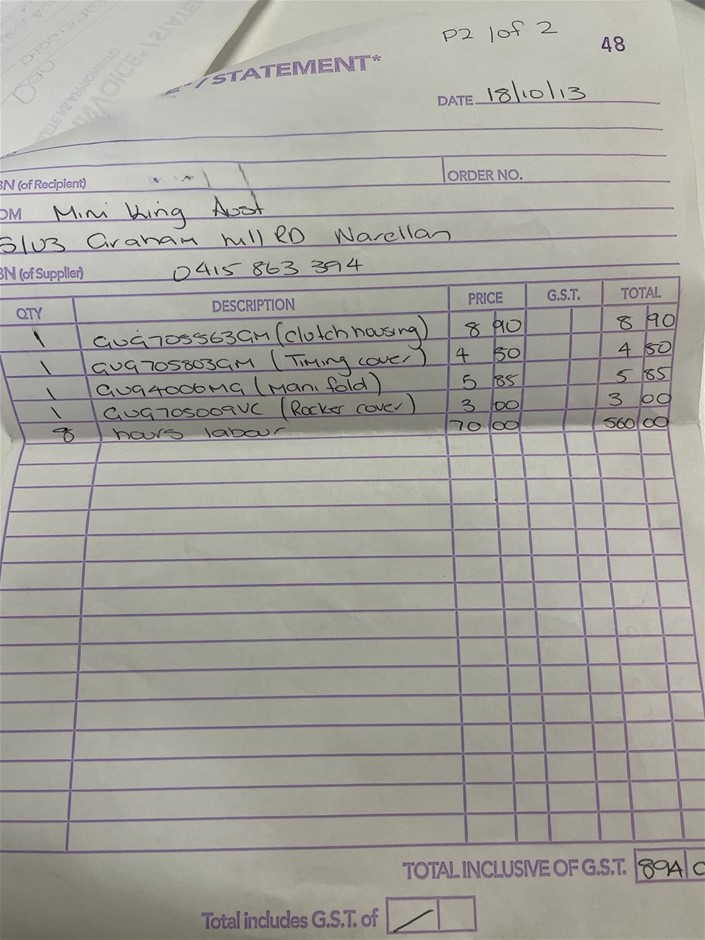 P2 1 of 2
48
/ STATEMENT*
DATE 18/10/13
BN (of Recipient)
ORDER NO.
OM Mini King Aust
5/103 Graham hill RD Narellan
BN (of Supplier) 0415 863 394
QTY DESCRIPTION PRICE G.S.T. TOTAL
1 GUG705563GM (Clutch housing) 8 90 8 90
1 GUG705803GM (Timing cover) 4 50 4 50
1 GUG4006MG (Manifold) 5 85 5 85
1 GUG705009VC (Rocker cover) 3 00 3 00
8 hours labour 70 00 560 00
TOTAL INCLUSIVE OF G.S.T. 894
Total includes G.S.T. of